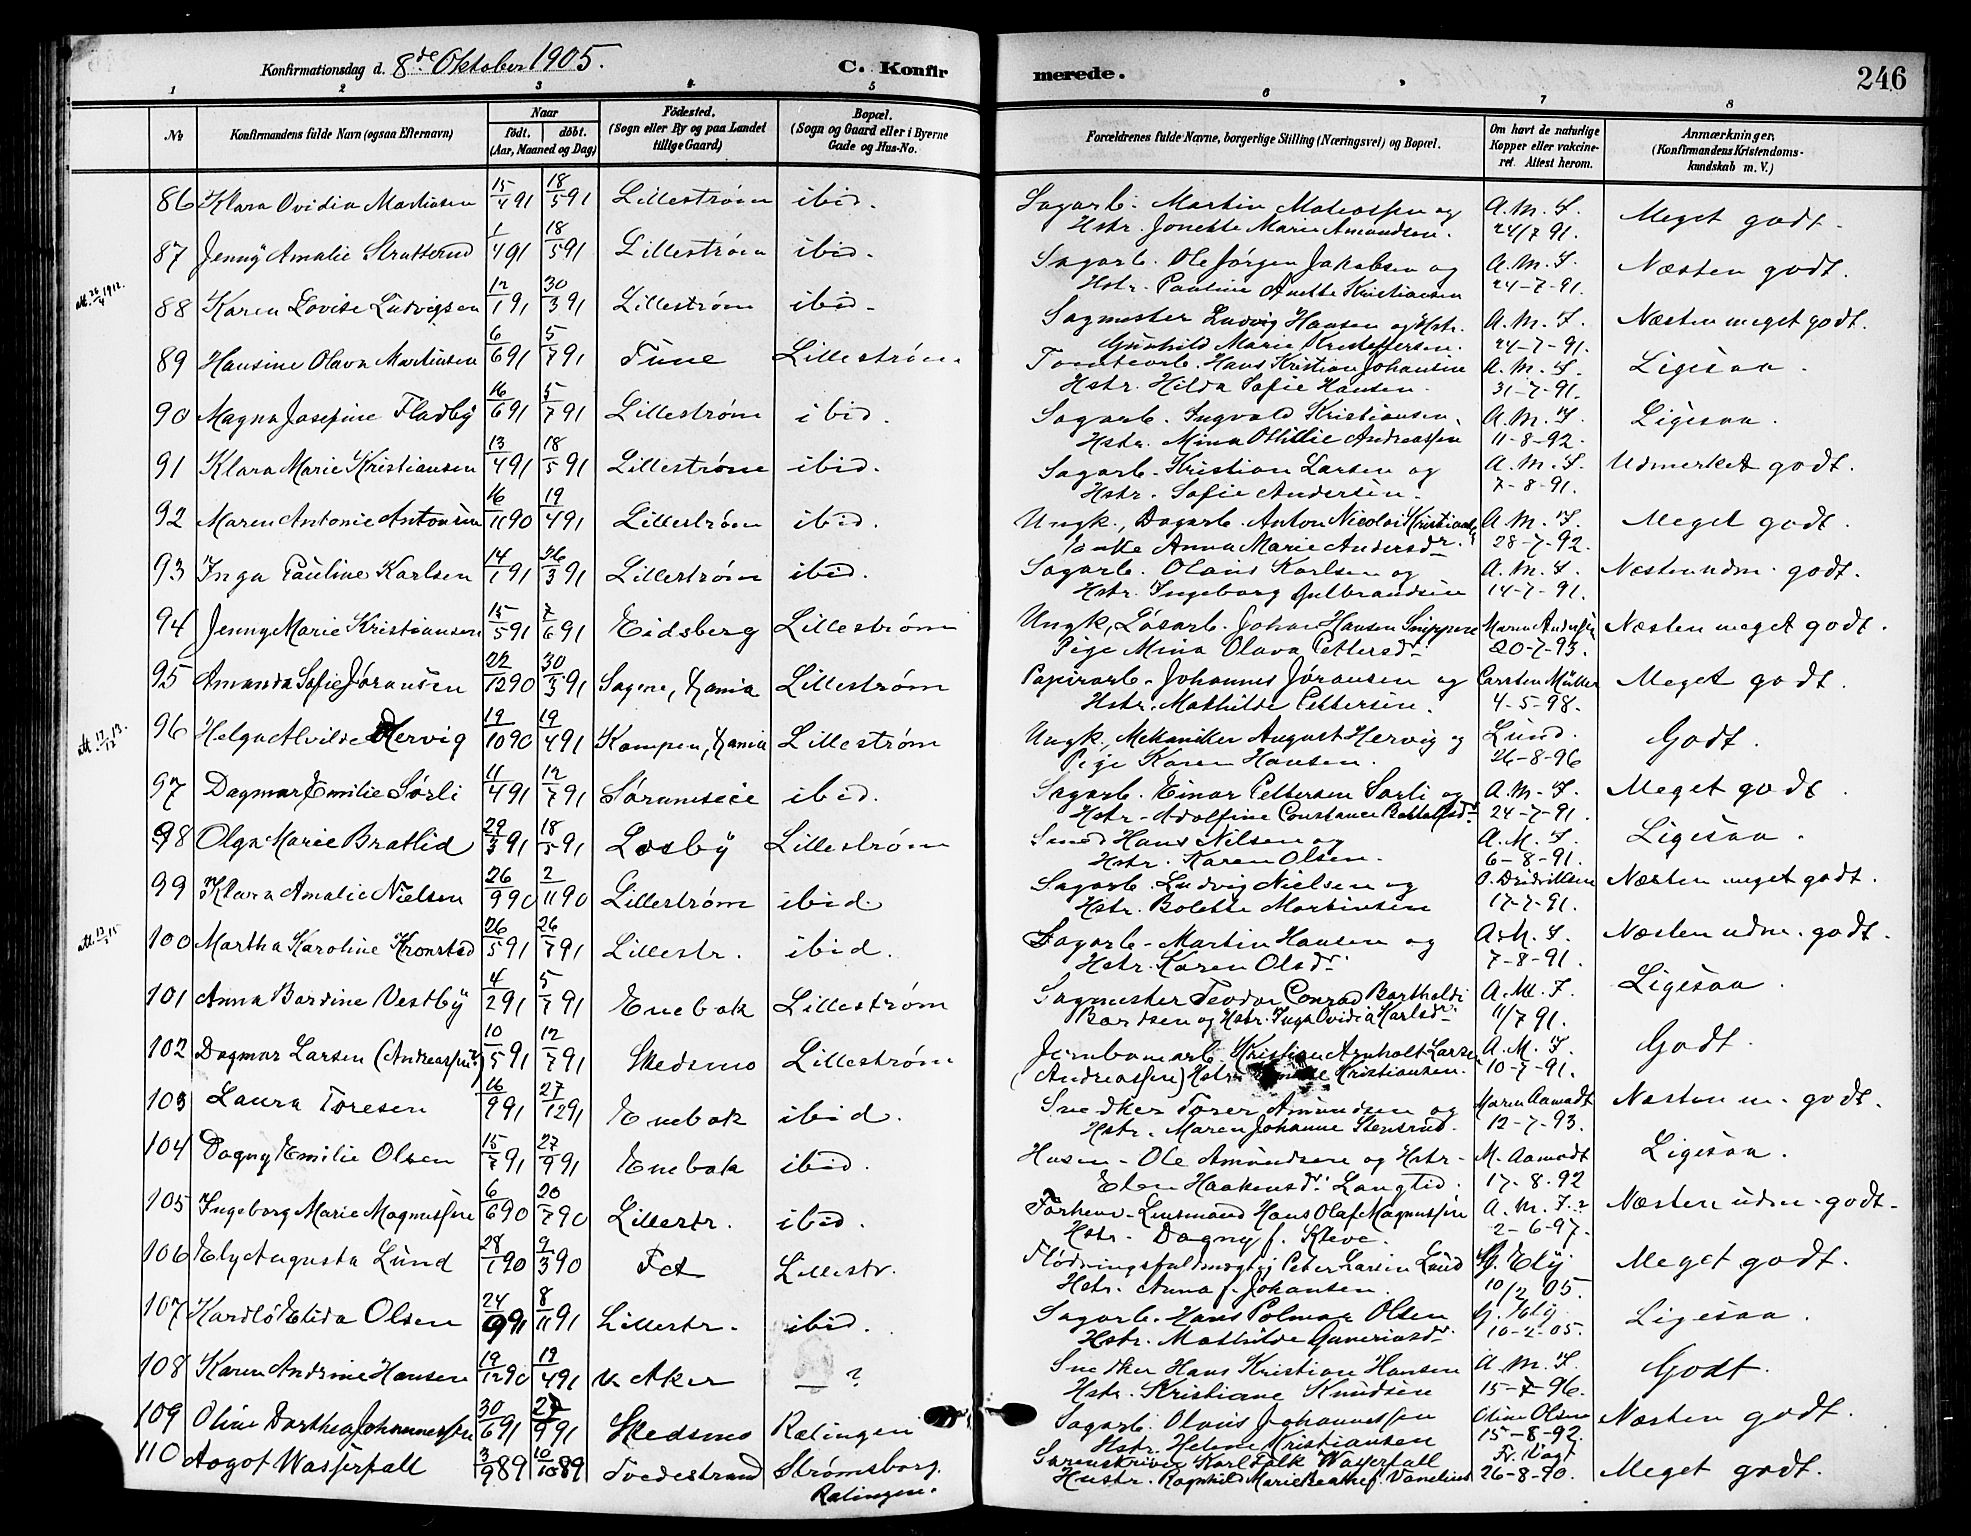 Konfirmationsdag d. 8de Oktober 1905.
C. Konfir
merede.
246
1 2 3 4 5 6 7 8
No
Konfirmandens fulde Navn (ogsaa Efternavn)
Naar
født, døbt.
(Aar, Maaned og Dag)
Fødested.
(Sogn eller By og paa Landet
tillige Gaard)
Bopæl.
(Sogn og Gaard eller i Byerne
Gade og Hus-No.
Forældrenes fulde Navne, borgerlige Stilling (Næringsvei) og Bopæl.
Om havt de naturlige
Kopper eller vakcine-
ret. Attest herom.
Anmærkninger,
(Konfirmandens Kristendoms-
kundskab m. V.)
86 Klara Ovidia Martinsen 15/4 91 18/5 91 Lillestrøm ibid. Sagarb. Martin Mateassen og A.M.F. Meget godt.
Hstr. Jonette Marie Amundsen. 24/7 91.
87 Jenny Amalie Strutterud 1/4 91 18/5 91 Lillestrøm ibid. Sagarb. Ole Jørgen Jakobsen og A.M.F. Næsten godt.
Hstr. Pauline Anette Kristiansen 24-7-91.
att. 26/4 1912.
88 Karen Lovise Ludvigsen 12/1 91 30/3 91 Lillestrøm ibid. Sagmester Ludvig Hansen og Hstr. A.M.F. Næsten meget godt.
Gunhild Marie Kristoffersen. 24-7-91.
89 Hansine Olava Martinsen 6/6 91 5/7 91 Tune Lillestrøm. Tomtearb. Hans Kristian Johansine A.M.F. Ligesaa.
Hstr. Hilda Sofie Hansen. 31-7-91.
90 Magna Josefine Fladby 16/6 91 5/7 91 Lillestrøm ibid. Sagarb. Ingvald Kristiansen. A.M.F. Ligesaa.
Hstr. Mina Otillie Andreassen 11-8-92.
91 Klara Marie Kristiansen 13/4 91 18/5 91 Lillestrøm ibid. Sagarb. Kristian Larsen og A.M.F. Udmerket godt.
Hstr. Sofie Andersen. 7-8-91.
92 Maren Antonie Antonsen 16/11 90 19/4 91 Lillestrøm ibid. Ungk., Dagarb. Anton Nicolai Kristians A.M.F. Meget godt.
Anna Marie Andersdr. 28-7-92.
93 Inga Pauline Karlsen 14/1 91 26/3 91 Lillestrøm ibid. Sagarb. Olaus Karlsen og A.M.F. Næsten udm. godt.
Hstr. Ingeborg Gulbrandsen 14-7-91.
94 Jenny Marie Kristiansen 15/5 91 7/6 91 Eidsberg Lillestrøm Ungk., Løsarb. Johan Hansen Snippene Maren Andersen Næsten meget godt.
Pige Mina Olava Pettersdr. 20-7-93.
95 Amanda Sofie Jøransen 22/12 90 30/3 91 Sagene, Kania Lillestrøm Papirarb. Johannes Jøransen og Carsten Müller Meget godt.
Hstr. Mathilde Pettersen. 4-5-98.
att. 17/12 13.
96 Helga Alvilde Hervig 19/10 90 19/4 91 Kampen, Kania Lillestrøm Ungk., Mekaniker August Hervig og Lund. Godt.
Pige Karen Hansen. 26-8-96
97 Dagmar Emilie Sørli 11/4 91 12/7 91 Sørumseie ibid. Sagarb. Einar Pettersen Sørli og A.M.F. Meget godt.
Hstr. Adolfine Constance 24-7-91.
98 Olga Marie Bratlid 29/3 91 18/5 91 Losby Lillestrøm Smed Hans Nilsen og A.M.F. Ligesaa.
Hstr. Karen Olsen. 6-8-91.
99 Klara Amalie Nielsen 26/9 90 2/11 90 Lillestrøm ibid. Sagarb. Ludvig Nielsen og O. Didriksen Næsten meget godt.
Hstr. Bolette Martinsen 17-7-91.
100 Martha Karoline Kronstad 26/5 91 26/7 91 Lillestr. ibid. Sagarb. Martin Hansen og A.M.F. Næsten udm. godt.
Hstr. Karen Olsdr. 7-8-91.
101 Anna Bardine Vestby 4/2 91 5/7 91 Enebak Lillestrøm Sagmester Teodor Conrad Bartholdi A.M.F. Ligesaa.
Bardsen og Hstr. Inga Ovidia Karlsdr. 11/7 91.
102 Dagmar Larsen (Andreassen) 10/5 91 12/7 91 Skedsmo Lillestrøm Jernbanearb. Kristian Arnholt Larsen A.M.F. Godt.
(Andreassen) Hstr. Kristiansen. 10-7-91.
103 Laura Toresen 16/9 91 27/12 91 Enebak ibid. Snedker Torer Amundsen og Maren Aamodt Næsten m. godt.
Hstr. Maren Johanne Stensrud. 12-7-93.
104 Dagny Emilie Olsen 15/7 91 27/9 91 Enebak ibid. Husm. Ole Amundsen og Hstr. M. Aamodt Ligesaa.
Elen Haakensdr. Langlid. 17-8-92
105 Ingeborg Marie Magnussen 6/6 90 20/7 90 Lillestr. ibid. Forhenv. Lensmand Hans Olaf Magnussen A.M.F.? Næsten udm. godt.
Hstr. Dagny f. Kleve. 2-6-97.
106 Ely Augusta Lund 28/1 90 9/3 90 Fet Lillestr. Fløtningsfuldmægtig Peter Larsen Lund G. Elij Meget godt.
Hstr. Anna f. Johansen. 10/2 05.
107 Kardlø Elida Olsen 24/9 91 8/11 91 Lillestr. ibid. Sagarb. Hans Polmar Olsen G. Elij Ligesaa.
Hstr. Mathilde Guneriusdr. 10-2-05.
108 Karen Andrine Hansen 19/12 90 19/4 91 V Aker — ? Snedker Hans Kristian Hansen A.M.F. Godt.
Hstr. Kristiane Knudsen 15-7-96.
109 Oline Dorthea Johannessen 30/6 91 27/9 91 Skedsmo Rælingen Sagarb. Olaus Johannessen Oline Olsen Næsten godt.
Hstr. Helene Kristiansen 15-8-92.
110 Aagot Wasserfall 3/9 89 10/10 89 Tvedestrand Strømsborg, Sorenskriver Karl Falk Wasserfall Fr. Vogt Meget godt.
Rælingen. Hustr. Ragnhild Marie Beathe f. Vanelius 26-8-90.